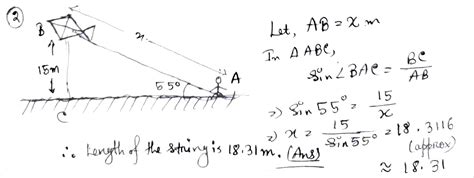 ②
B
x
15m
55°
A
C
Let, AB = x m
In Δ ABC,
Sin∠BAC = BC/AB
=> Sin 55° = 15/x
=> x = 15/Sin 55° = 18.3116
(approx)
≈ 18.31
∴ Length of the string is 18.31 m. (Ans)